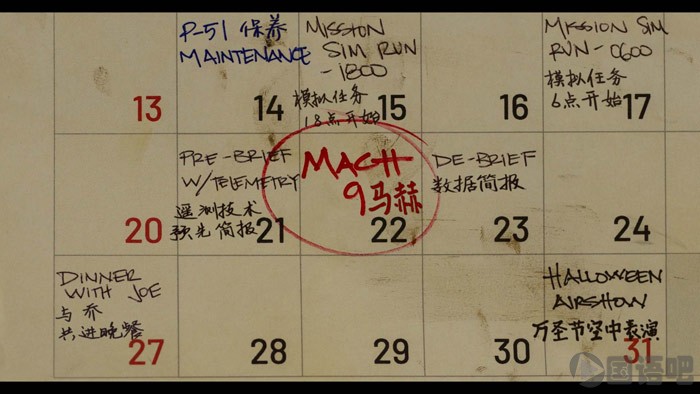 P-51 保养
MAINTENANCE
13
14
MISSION
SIM RUN
-1800
模拟任务
18点开始
15
16
MISSION SIM
RUN-0600
模拟任务
6点开始
17
20
PRE-BRIEF
W/TELEMETRY
遥测技术
预先简报
21
MACH
9马赫
22
DE-BRIEF
数据简报
23
24
DINNER
WITH JOE
与 乔
共进晚餐
27
28
29
30
HALLOWEEN
AIRSHOW
万圣节空中表演
31
国语吧